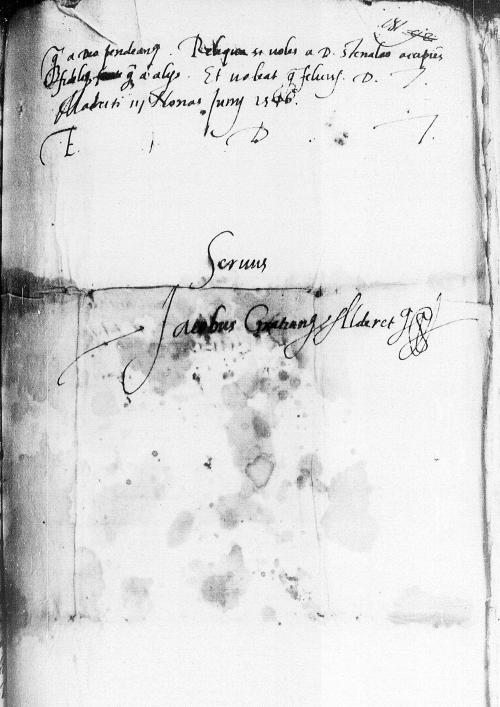 181
q̃ a Deo pendeant. Reliqua si voles a D. Stenalao accipies
fidelq q̃ a alys. Et valeat q̃ felciss. D. T.
Madriti iij Nonas Juny 15
E. D. T.
Servus
Jacobus Gratianus Alderet